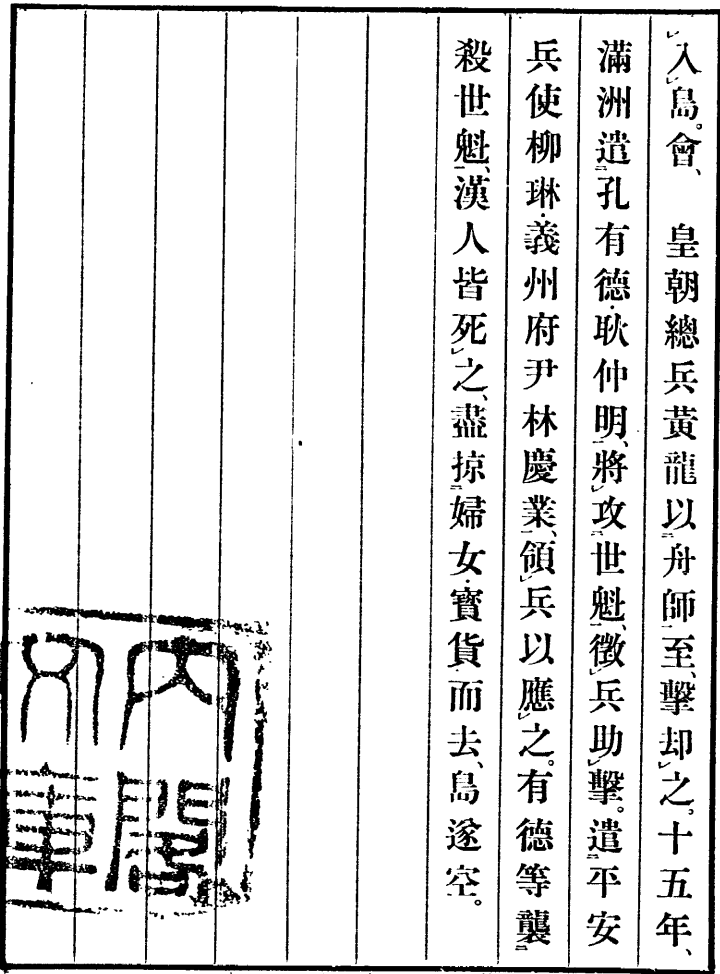 入島。會、　皇朝總兵黃龍以舟師至、擊却之。十五年、
滿洲遣孔有德・耿仲明、將攻世魁、徵兵助擊。遣平安
兵使柳琳・義州府尹林慶業、領兵以應之。有德等襲
殺世魁、漢人皆死之、盡掠婦女・寶貨而去、島遂空。
內閣
文庫